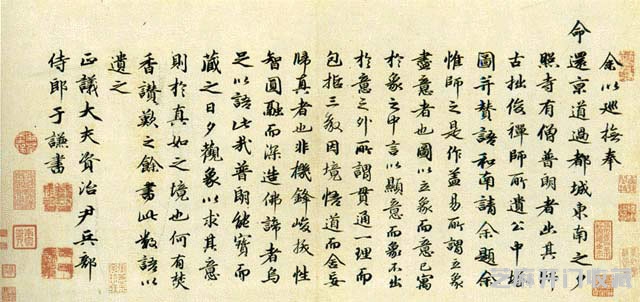 余以巡撫奉
命還京道過都城東南之夕
照寺有僧普朗者出其師
古拙俊禪師所遺公中塔
圖并贊語和南請余題余
惟師之是作蓋易所謂立象
盡意者也圖以立象而意已寓
於象之中言以顯意而象不出
於意之外所謂貫通一理而
包括三教因境悟道而舍妄
歸真者也非機鋒峻拔性
智圓融而深造佛諦者烏
足以語此哉普朗能寶而
藏之日夕觀象以求其意
則於真如之境也何有焚
香讚歎之餘書此數語以
遺之
正議大夫資治尹兵部
侍郎于謙書
芝麻开门收藏